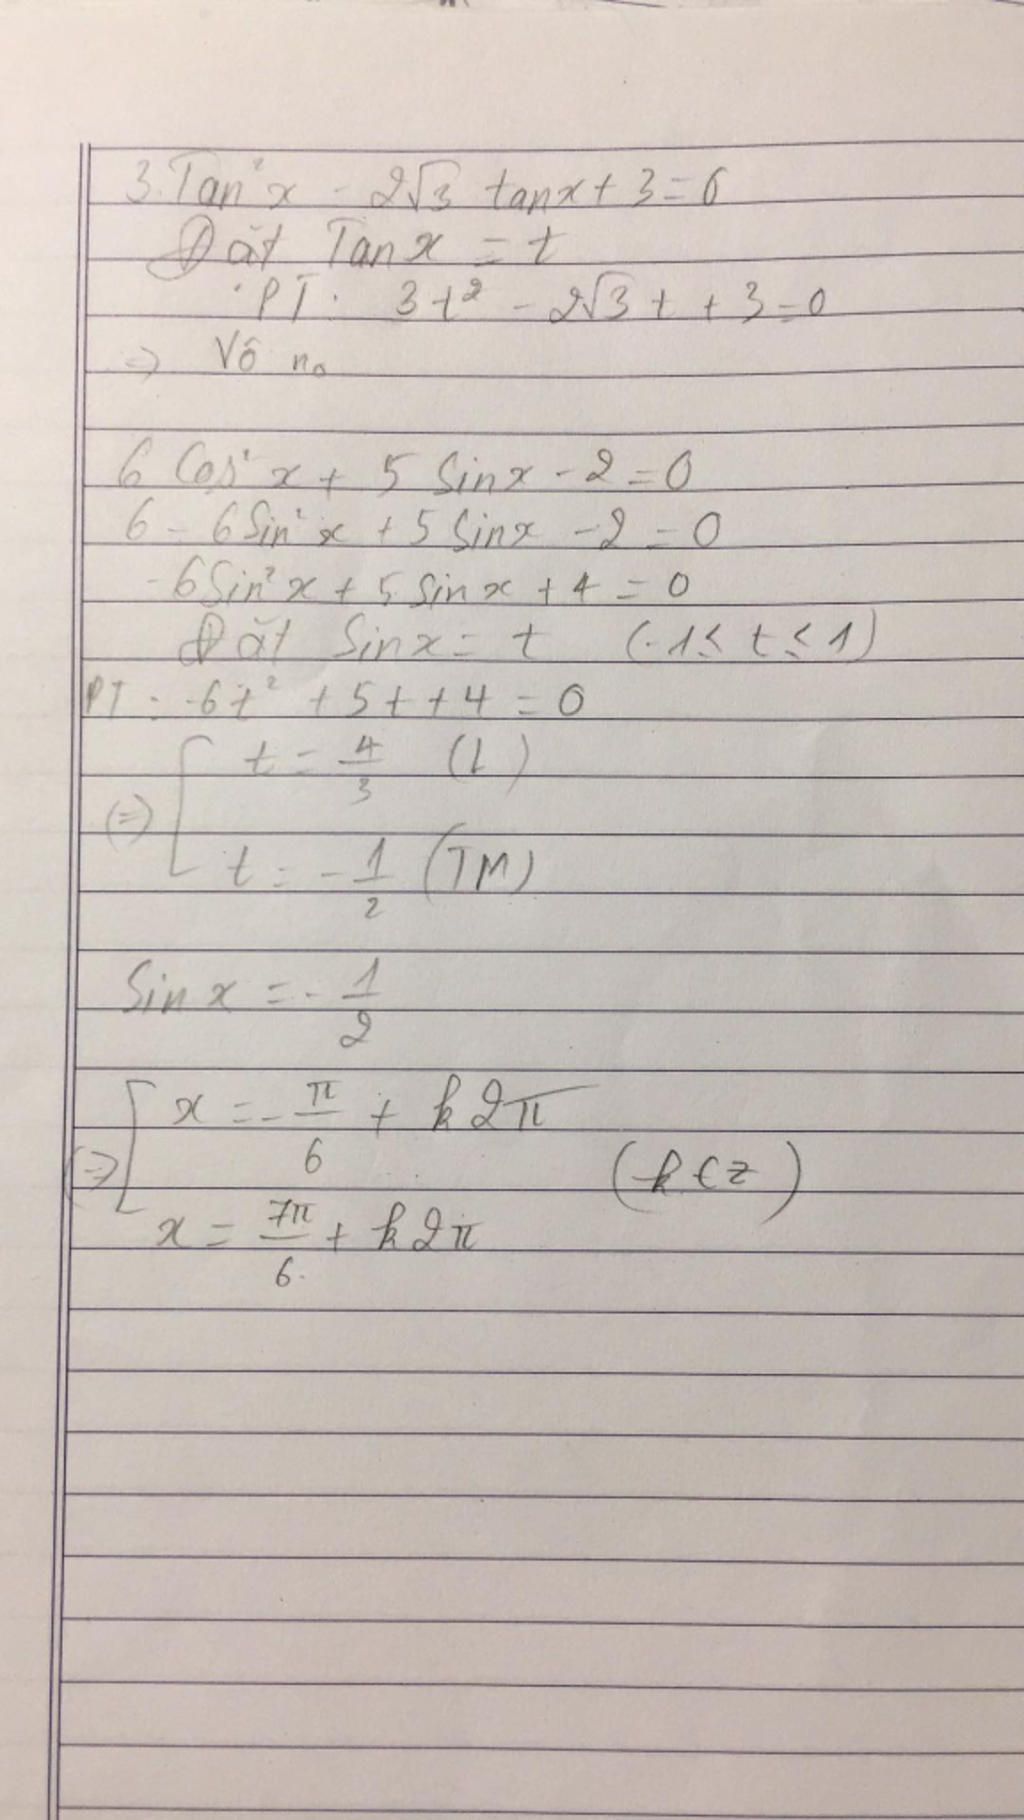 3.Tan²x - 2√3 tanx + 3 = 0
Đặt Tanx = t
PT: 3t² - 2√3 t + 3 = 0
=> Vô no
6 Cos²x + 5 Sinx - 2 = 0
6 - 6Sin²x + 5 Sinx - 2 = 0
-6Sin²x + 5 Sinx + 4 = 0
Đặt Sinx = t (-1 ≤ t ≤ 1)
PT: -6t² + 5t + 4 = 0
(=>) [ t = 4/3 (L)
t = -1/2 (TM)
Sin x = -1/2
(=>) [ x = -π/6 + k2π
(k ∈ z)
x = 7π/6 + k2π